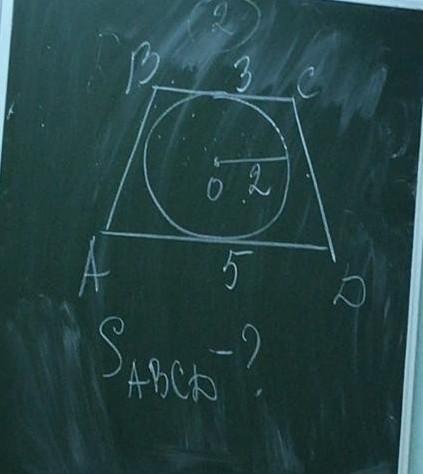 2
B 3 C
O 2
A 5 D
S ABCD - ?